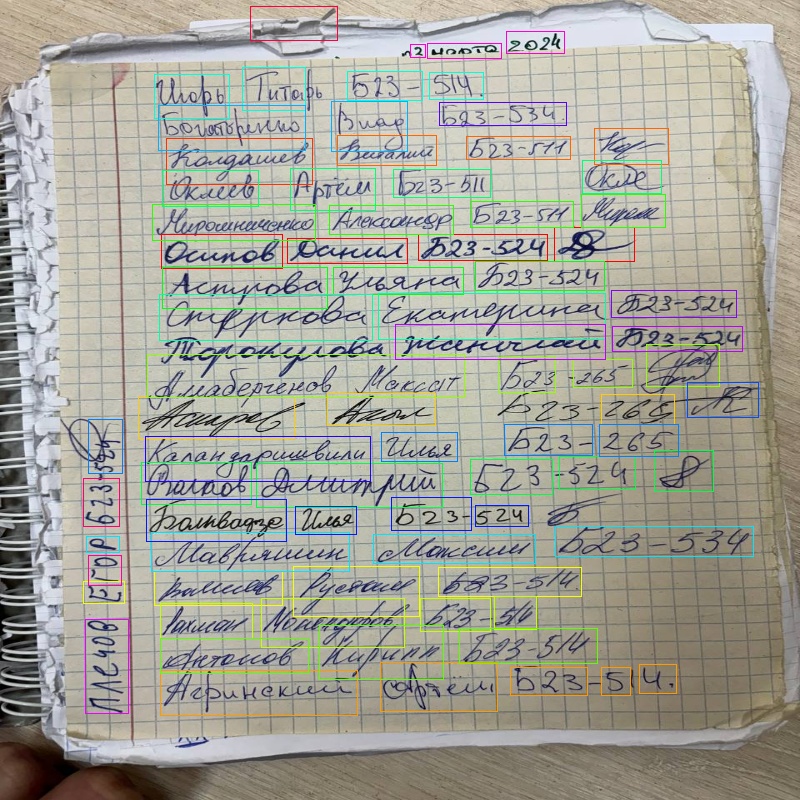 12 марта 2024
Игорь Титарь Б23-514.
Богатыренко Влад Б23-534.
Колдашев Виталий Б23-511
Оклеев Артём Б23-511 Окле
Миромниченко Александр Б23-511
Осипов Данил Б23-524
Астрова Ульяна Б23-524
Стернова Екатерина Б23-524
Торокулова Б23-524
Амабергенов Максат Б23-265
Аскаров Акыл Б23-265
Каландаришвили Илья Б23-265
Дмитрий Б23-524
Болквадзе Илья Б23-524
Мавряшин Максим Б23-534
Рустам Б23-514.
Рахман Б23-514
Антонов Кирилл Б23-514
Агринский Артём Б23-514.
Плечов Егор Б23-524